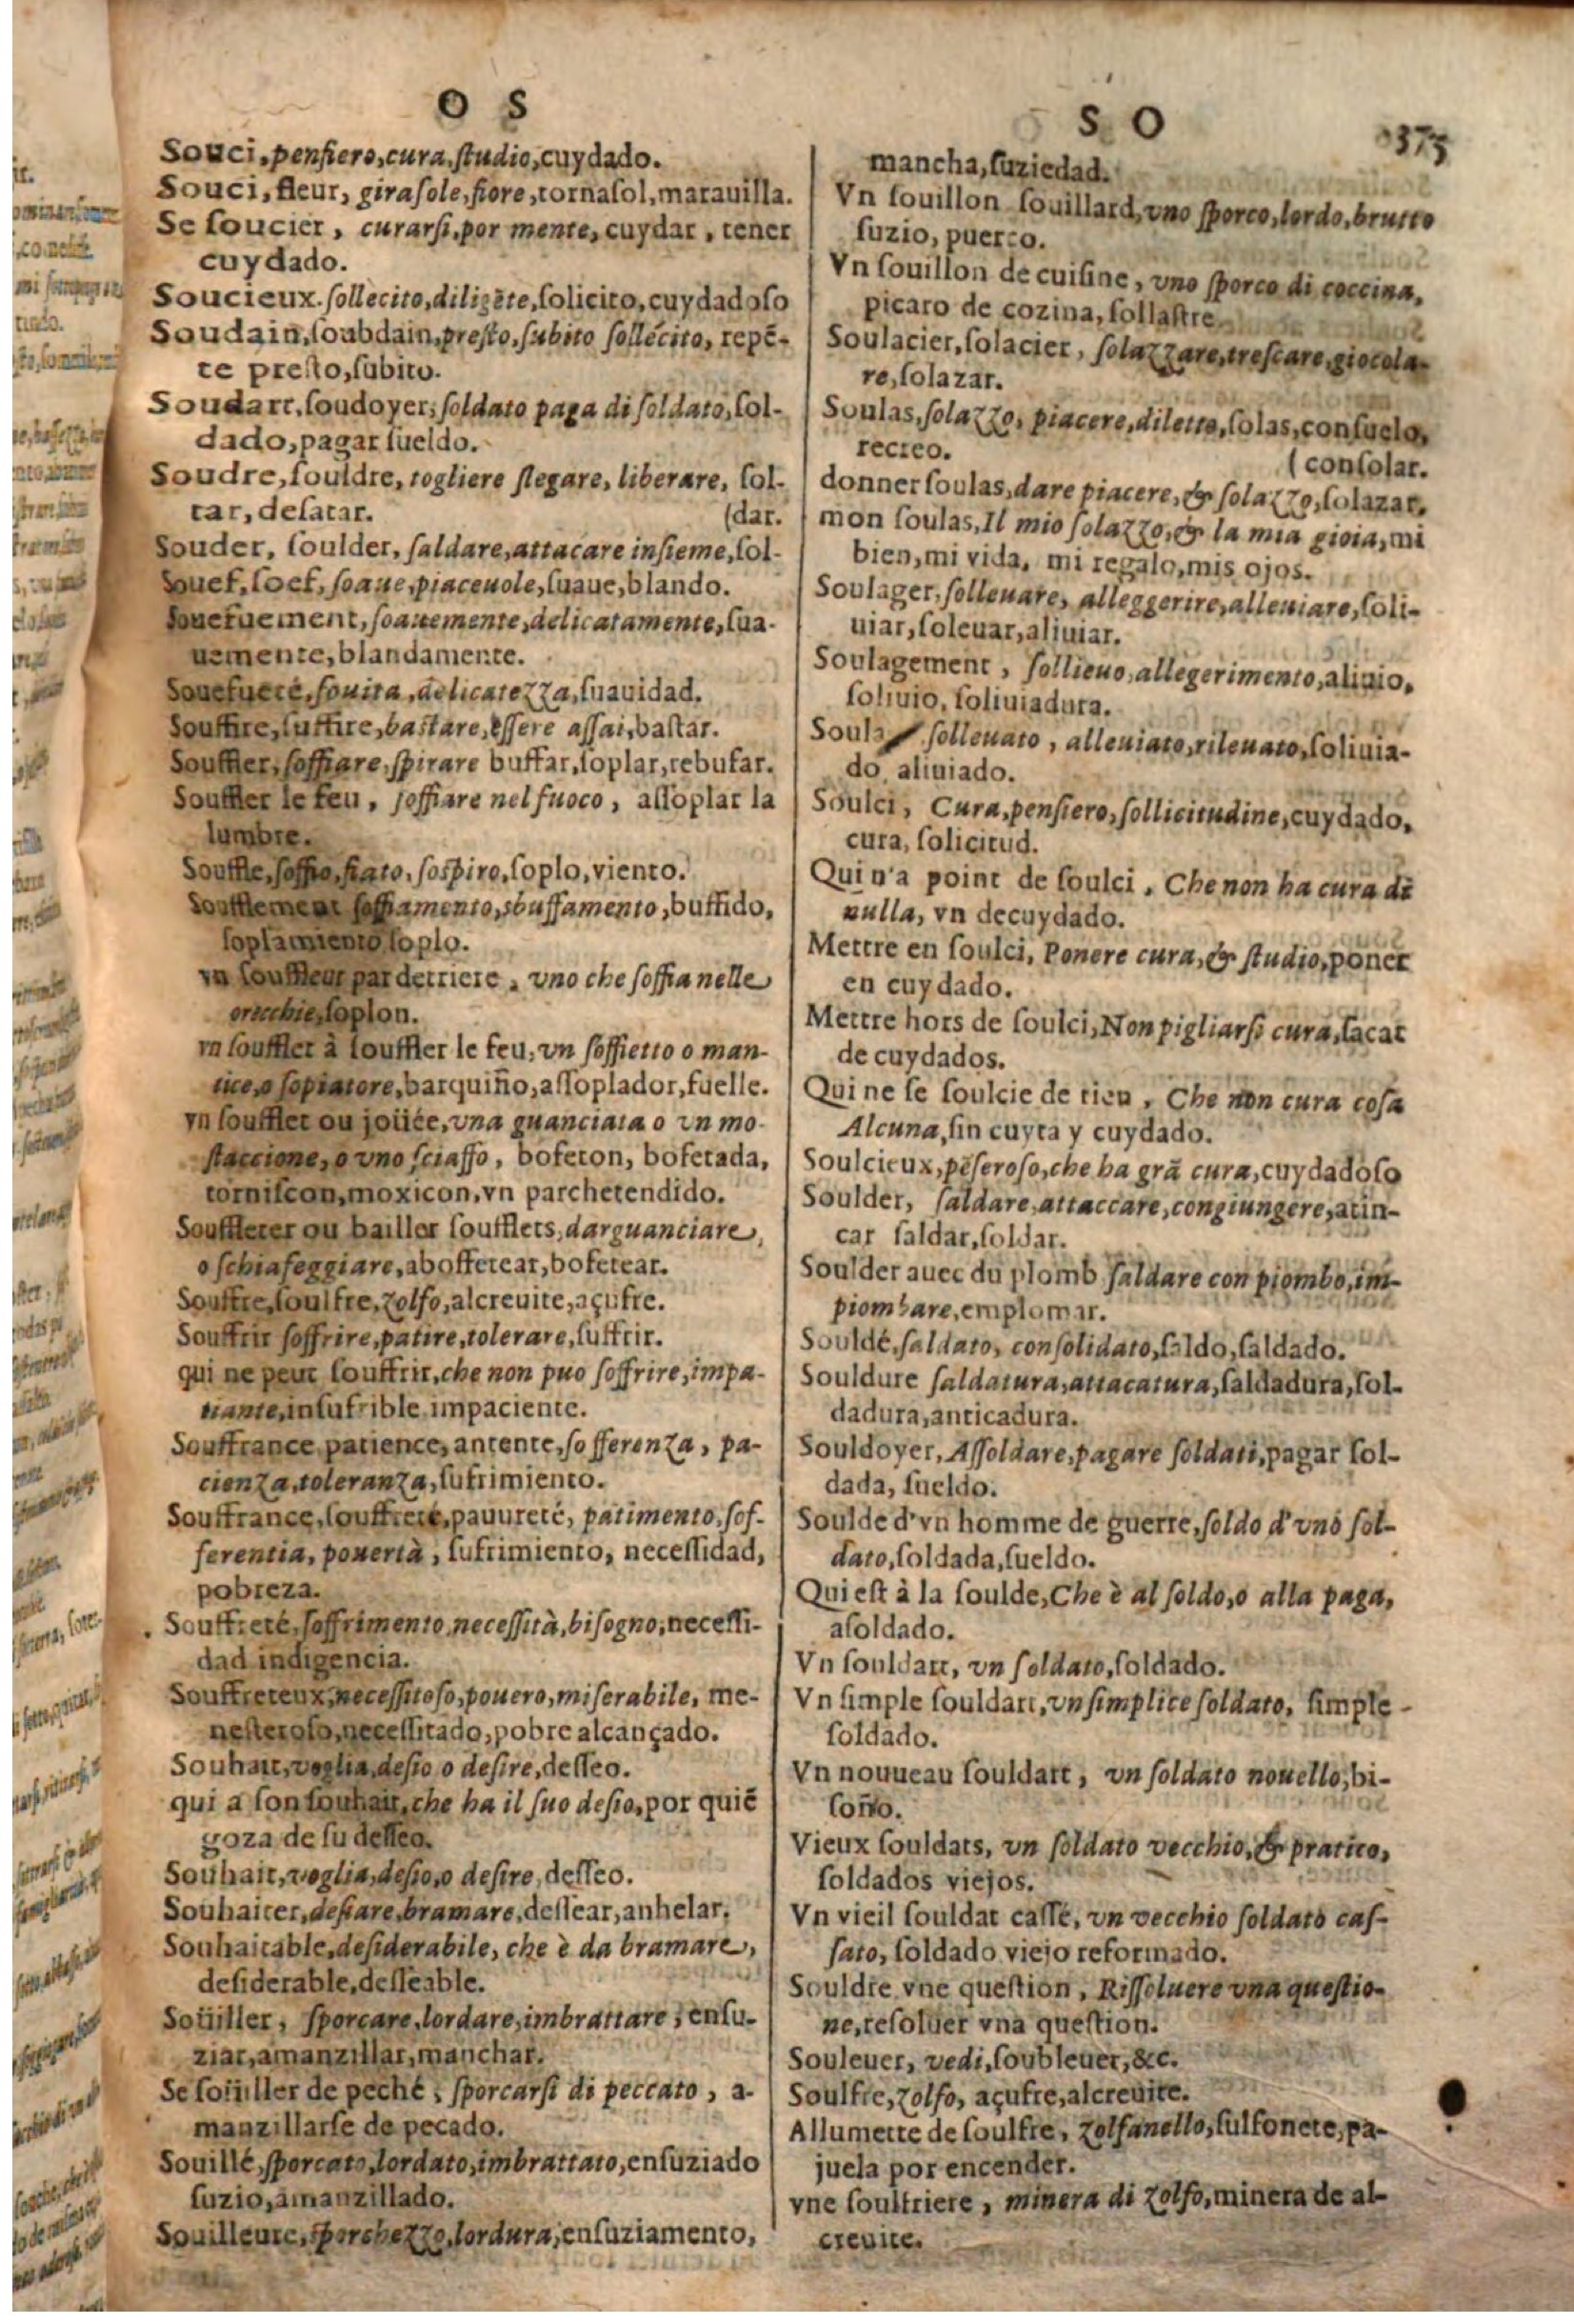 O S
Souci, pensiero, cura, studio, cuydado.
Souci, fleur, girasole, fiore, tornasol, marauilla.
Se soucier, curarsi, por mente, cuydar, tener
cuydado.
Soucieux. sollecito, diligēte, solicito, cuydadoso
Soudain, soubdain, presto, subito sollécito, repē-
te presto, subito.
Soudart, soudoyer, soldato paga di soldato, sol-
dado, pagar sueldo.
Soudre, souldre, togliere slegare, liberare, sol-
tar, desatar. (dar.
Souder, soulder, saldare, attacare insieme, sol-
Souef, soef, soaue, piaceuole, suaue, blando.
Souefuement, soauemente, delicatamente, sua-
uemente, blandamente.
Souefueté, souita, delicatezza, suauidad.
Souffire, suffire, bastare, essere assai, bastar.
Souffler, soffiare, spirare buffar, soplar, rebufar.
Souffler le feu, soffiare nel fuoco, assoplar la
lumbre.
Souffle, soffio, fiato, sospiro, soplo, viento.
Soufflement soffiamento, sbuffamento, buffido,
soplamiento, soplo.
vn souffleur par derriere, uno che soffia nelle
orecchie, soplon.
vn soufflet à souffler le feu, vn soffietto o man-
tice, o sopiatore, barquiño, assoplador, fuelle.
vn soufflet ou joüée, vna guanciata o vn mo-
staccione, o vno sciaffo, bofeton, bofetada,
torniscon, moxicon, vn parchetendido.
Souffleter ou bailler soufflets, darguanciare,
o schiafeggiare, aboffetear, bofetear.
Souffre, soulfre, zolfo, alcreuite, açufre.
Souffrir soffrire, patire, tolerare, suffrir.
qui ne peut souffrir, che non puo soffrire, impa-
tiante, insufrible impaciente.
Souffrance patience, antente, sofferenza, pa-
cienza, toleranza, sufrimiento.
Souffrance, souffreté, pauureté, patimento, sof-
ferentia, pouertà, sufrimiento, necessidad,
pobreza.
Souffreté, soffrimento, necessità, bisogno, necessi-
dad indigencia.
Souffreteux, necessitoso, pouero, miserabile, me-
nesteroso, necessitado, pobre alcançado.
Souhait, voglia, desio o desire, desseo.
qui a son souhait, che ha il suo desio, por quiē
goza de su desseo.
Souhait, voglia, desio, o desire, desseo.
Souhaiter, desiare, bramare, dessear, anhelar.
Souhaitable, desiderabile, che è da bramare,
desiderable, desseable.
Soüiller, sporcare, lordare, imbrattare, ensu-
ziar, amanzillar, manchar.
Se soüiller de peché, sporcarsi di peccato, a-
manzillarse de pecado.
Souillé, sporcato, lordato, imbrattato, ensuziado
suzio, amanzillado.
Souilleure, sporchezzo, lordura, ensuziamento,
S O 375
mancha, suziedad.
Vn souillon souillard, vno sporco, lordo, brutto
suzio, puerco.
Vn souillon de cuisine, vno sporco di coccina,
picaro de cozina, sollastre.
Soulacier, solacier, solazzare, trescare, giocola-
re, solazar.
Soulas, solazzo, piacere, diletto, solas, consuelo,
recreo. (consolar.
donner soulas, dare piacere, & solazzo, solazar,
mon soulas, Il mio solazzo, & la mia gioia, mi
bien, mi vida, mi regalo, mis ojos.
Soulager, solleuare, alleggerire, alleuiare, soli-
uiar, soleuar, aliuiar.
Soulagement, sollieuo, allegerimento, aliuio,
soliuio, soliuiadura.
Soula solleuato, alleuiato, rileuato, soliuia-
do, aliuiado.
Soulci, Cura, pensiero, sollicitudine, cuydado,
cura, solicitud.
Qui n'a point de soulci, Che non ha cura di
nulla, vn decuydado.
Mettre en soulci, Ponere cura, & studio, poner
en cuydado.
Mettre hors de soulci, Non pigliarsi cura, sacar
de cuydados.
Qui ne se soulcie de rien, Che non cura cosa
Alcuna, sin cuyta y cuydado.
Soulcieux, pēseroso, che ha grā cura, cuydadoso
Soulder, saldare, attaccare, congiungere, atin-
car saldar, soldar.
Soulder auec du plomb saldare con piombo, im-
piombare, emplomar.
Souldé, saldato, consolidato, saldo, saldado.
Souldure saldatura, attacatura, saldadura, sol-
dadura, anticadura.
Souldoyer, Assoldare, pagare soldati, pagar sol-
dada, sueldo.
Soulde d'vn homme de guerre, soldo d'vno sol-
dato, soldada, sueldo.
Qui est à la soulde, Che è al soldo, o alla paga,
asoldado.
Vn souldart, vn soldato, soldado.
Vn simple souldart, vn simplice soldato, simple
soldado.
Vn nouueau souldart, vn soldato nouello, bi-
soño.
Vieux souldats, vn soldato vecchio, & pratico,
soldados viejos.
Vn vieil souldat cassé, vn vecchio soldato cas-
sato, soldado viejo reformado.
Souldre vne question, Rissoluere vna questio-
ne, resoluer vna question.
Souleuer, vedi, soubleuer, &c.
Soulfre, zolfo, açufre, alcreuite.
Allumette de soulfre, zolfanello, sulfonete, pa-
juela por encender.
vne soulfriere, minera di zolfo, minera de al-
creuite.